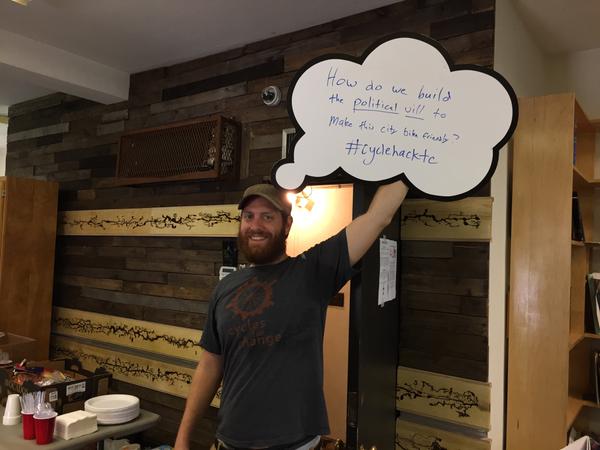 How do we build
the political will to
Make this city bike friendly?
#cyclehacktc
cycles
for
change